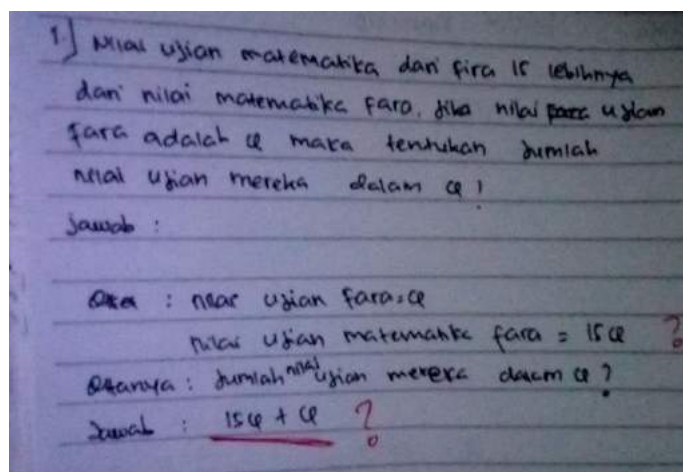 1.] Nilai ujian matematika dari fira 15 lebihnya
dari nilai matematika fara. Jika nilai ujian
fara adalah a maka tentukan jumlah
nilai ujian mereka dalam a!
Jawab :
Dik : nilai ujian fara = a
nilai ujian matematika fara = 15a ?
Ditanya : Jumlah nilai ujian mereka dalam a ?
Jawab : 15a + a ?